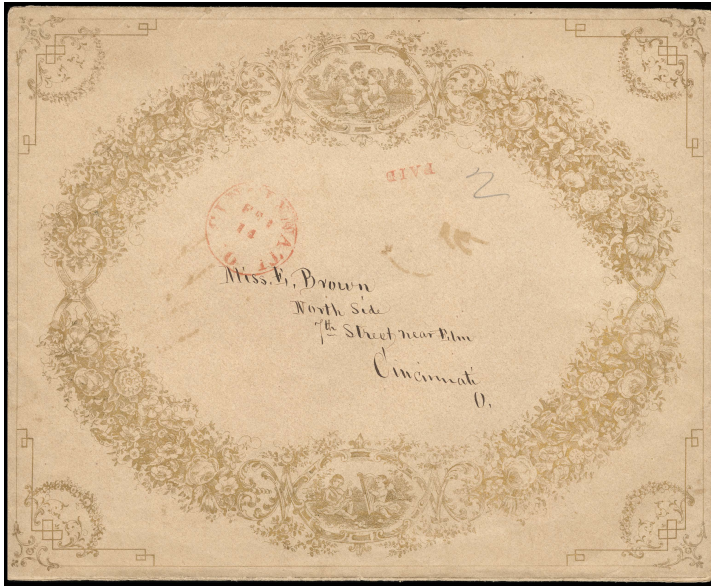 CINCINNATI O
FEB
14
PAID
2
Miss. E. Brown
North Side
7th Street near Elm
Cincinnati
O.